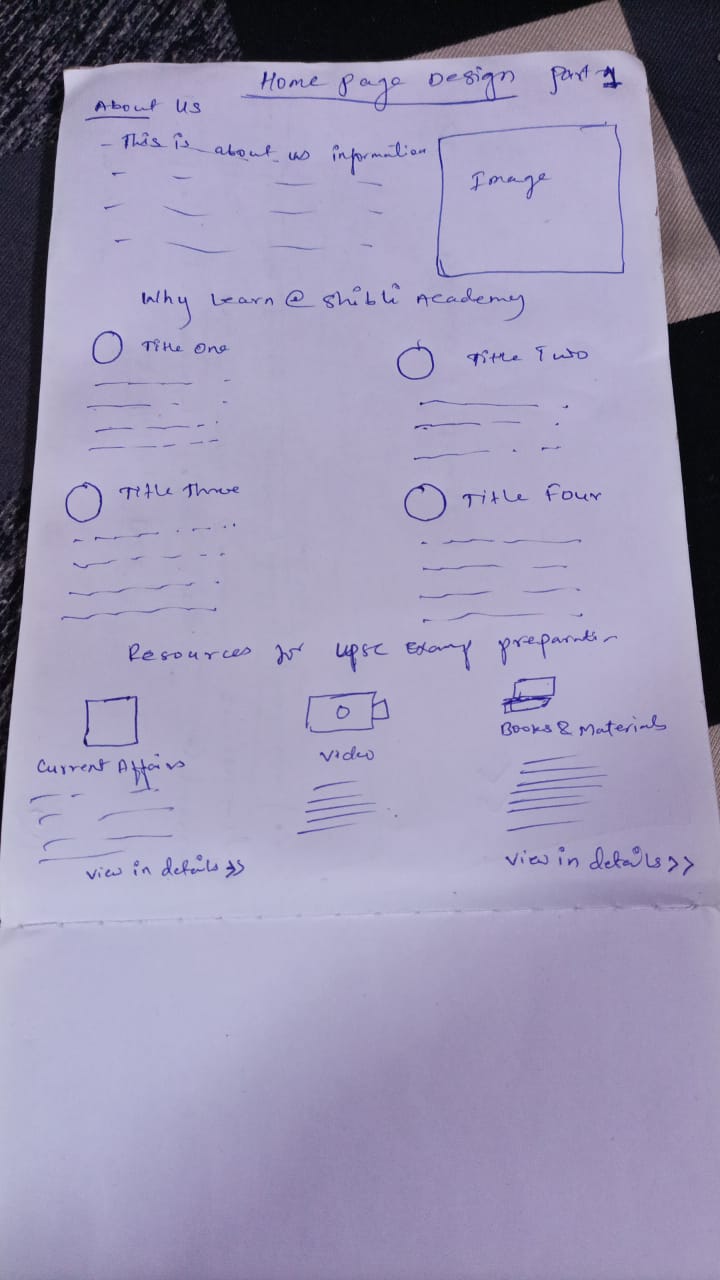 Home Page Design Part 1
About Us
- This is about us information
Image
Why Learn @ Shibli Academy
Title One
Title Two
Title Three
Title Four
Resources for UPSC Exam preparation
Current Affairs
Video
Books & Materials
View in details >>
View in details >>